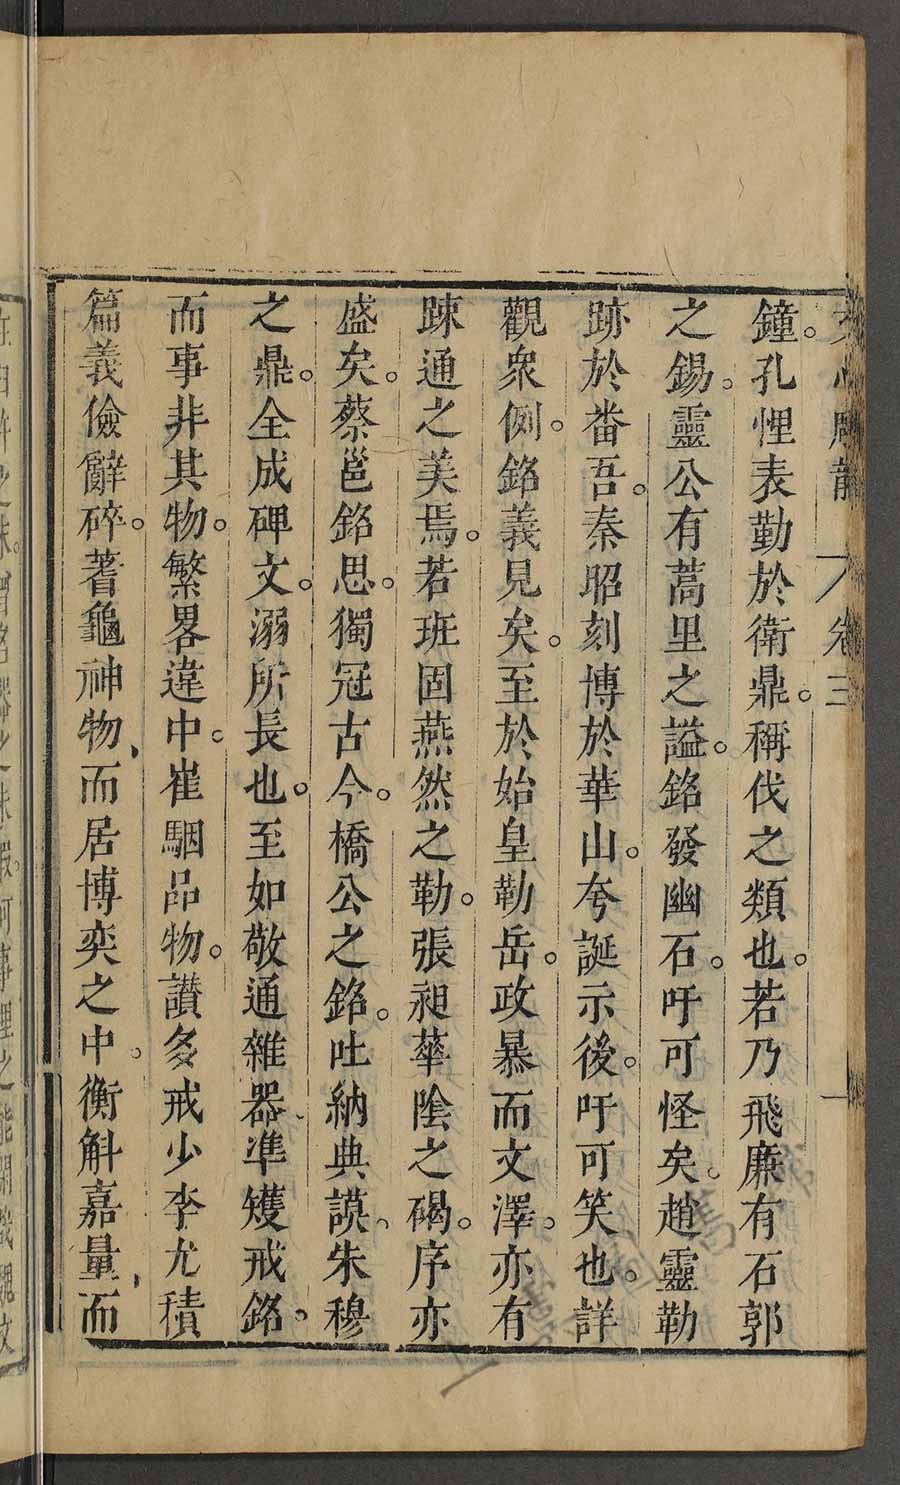 文心雕龍 卷三
鐘。孔悝表勤於衛鼎。稱伐之類也。若乃飛廉有石郭
之錫。靈公有蒿里之謚。銘發幽石。吁可怪矣。趙靈勒
跡於畨吾。秦昭刻博於華山。夸誕示後。吁可笑也。詳
觀衆例。銘義見矣。至於始皇勒岳。政暴而文澤。亦有
踈通之美焉。若班固燕然之勒。張昶華陰之碣。序亦
盛矣。蔡邕銘思。獨冠古今。橋公之銘。吐納典謨、朱穆
之鼎。全成碑文。溺所長也。至如敬通雜器、準矱戒銘。
而事非其物。繁畧違中。崔駰品物。讚多戒少李尤積
篇義儉辭碎。蓍龜神物、而居博奕之中。衡斛嘉量、而